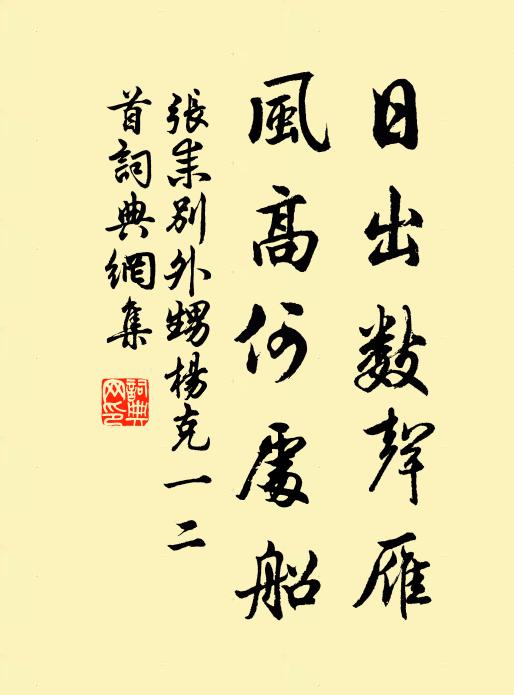 日出数聲雁
風高何處船
張耒別外甥楊克一二
首詞典網集
詞典网印